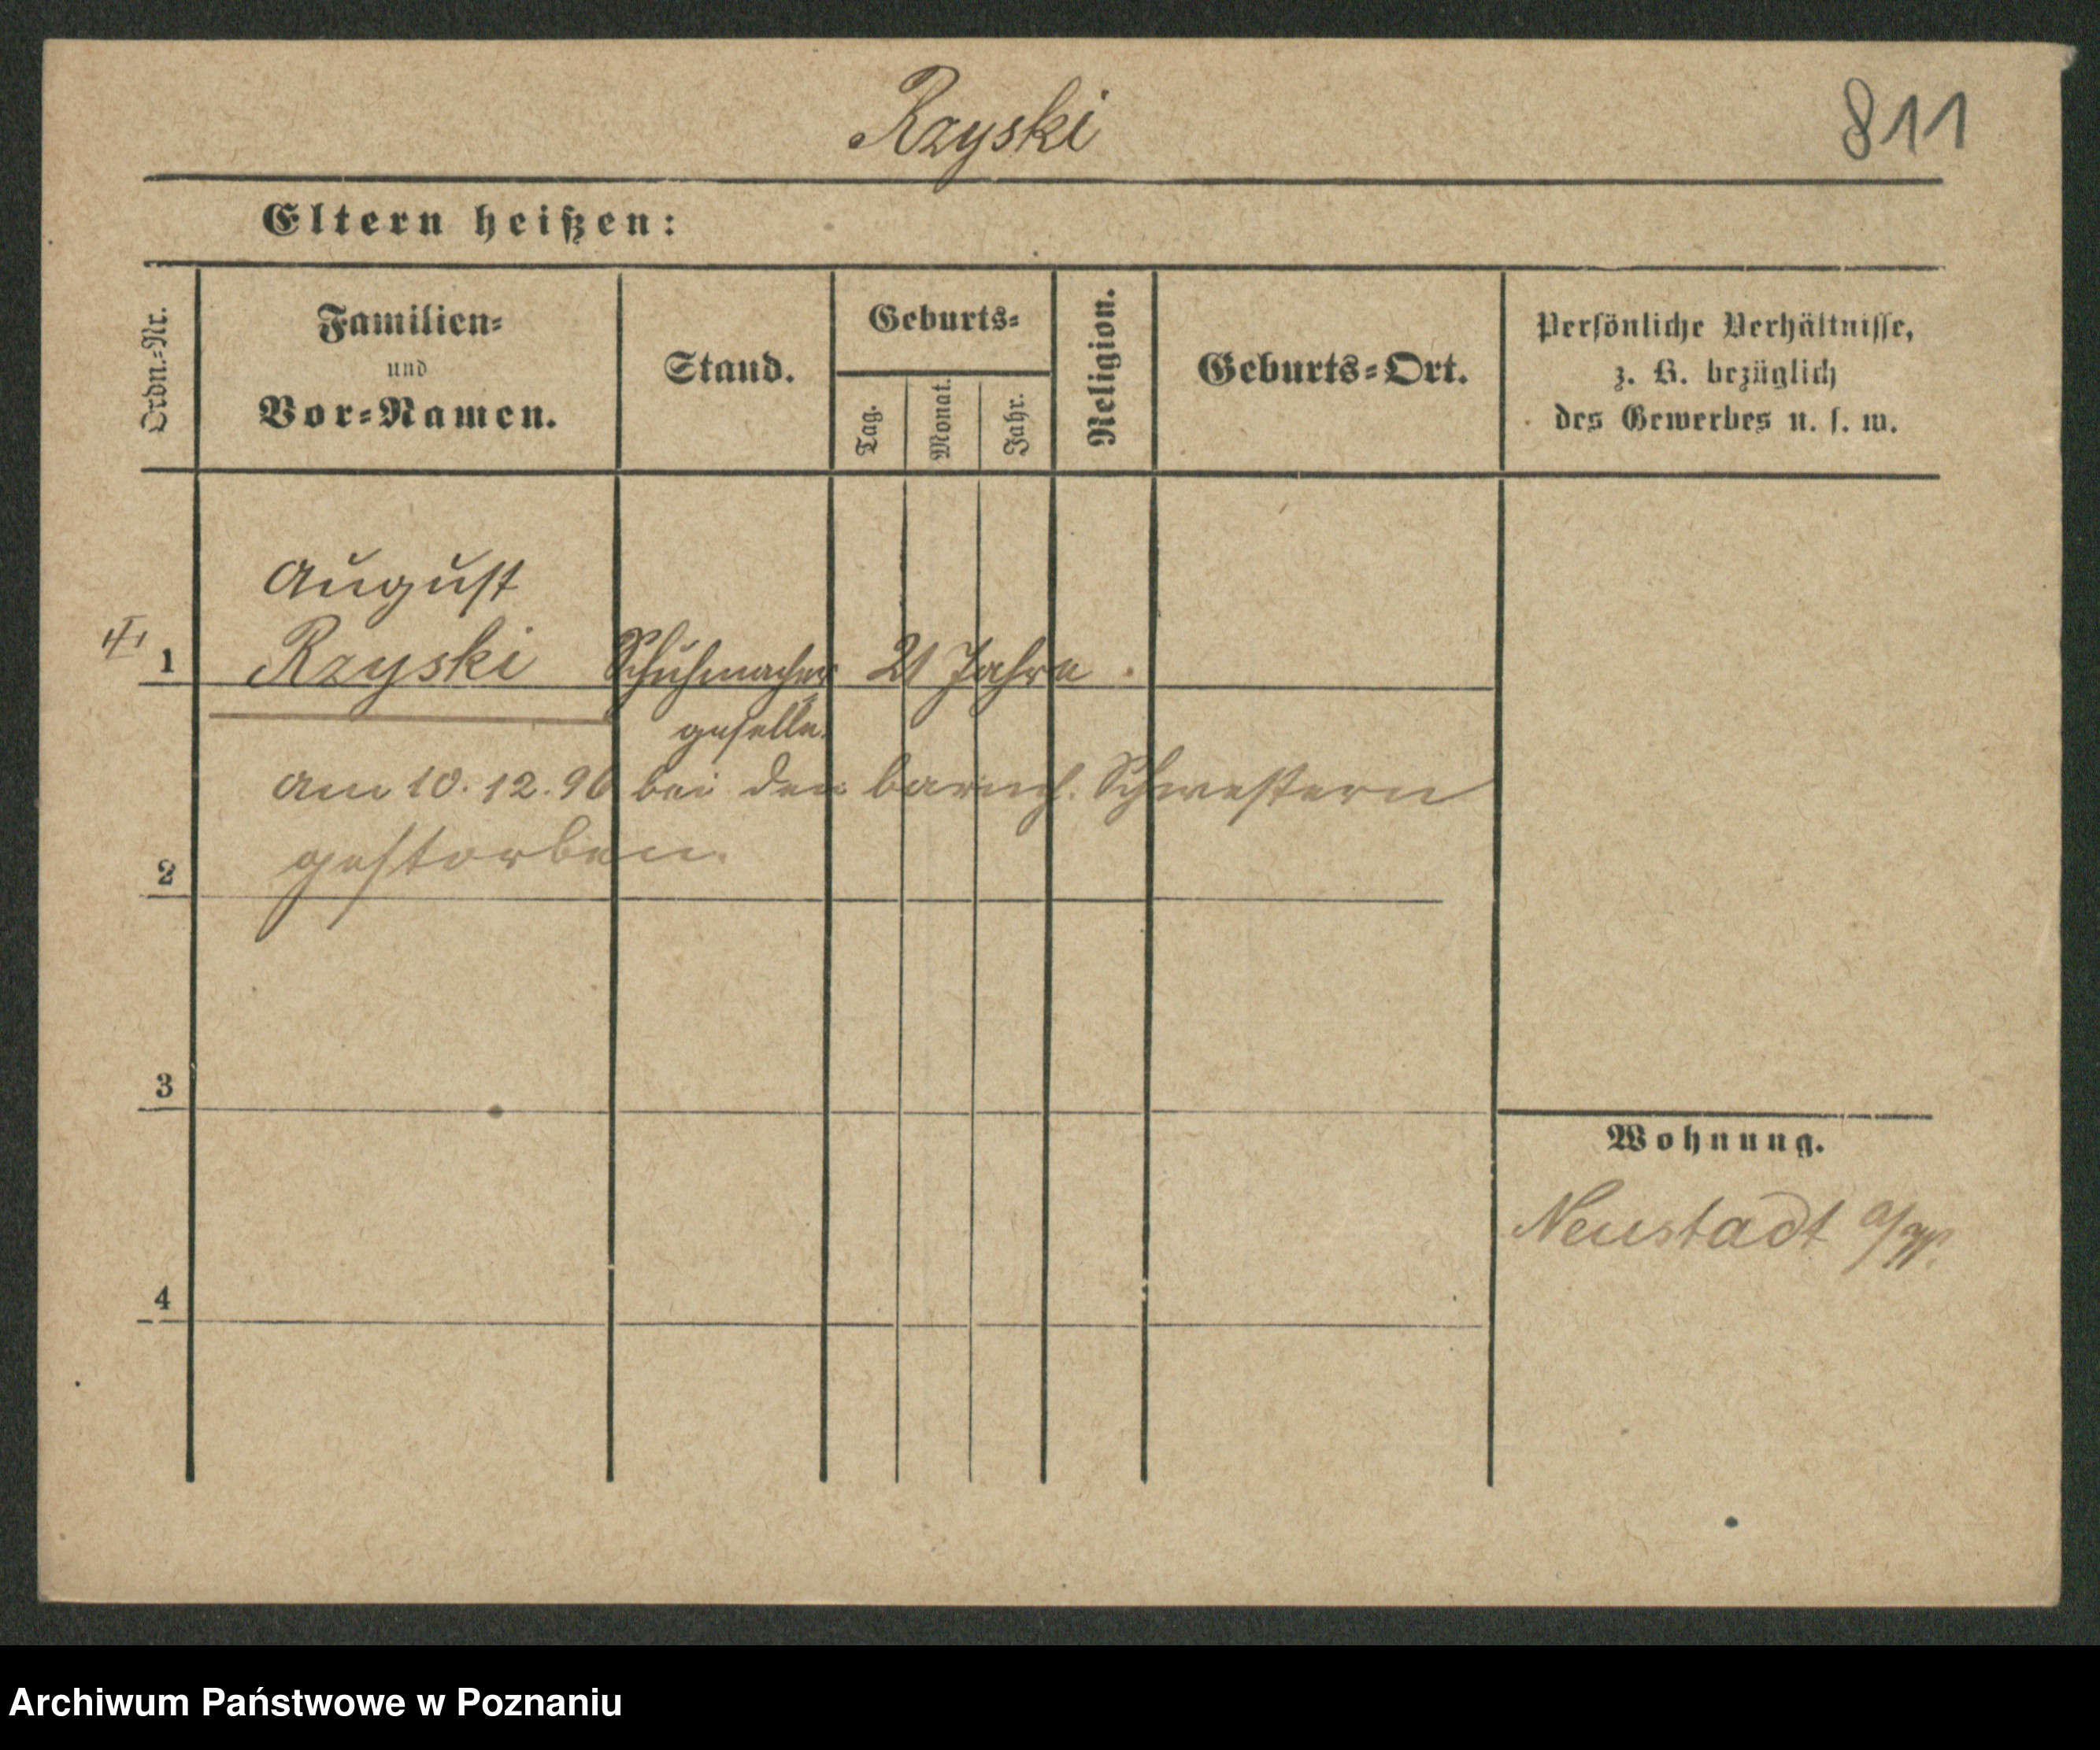 Rzyski
811
Eltern heißen:
Ordn.-Nr.
Familien-
und
Vor-Namen.
Stand.
Geburts-
Tag.
Monat.
Jahr.
Religion.
Geburts-Ort.
Persönliche Verhältnisse,
z. B. bezüglich
des Gewerbes u. s. w.
August
1 Rzyski Schuhmacher 21 Jahre.
geselle.
am 10.12.96 bei den barmh. Schwestern
2 gestorben.
3
Wohnung.
Neustadt
4
Archiwum Państwowe w Poznaniu